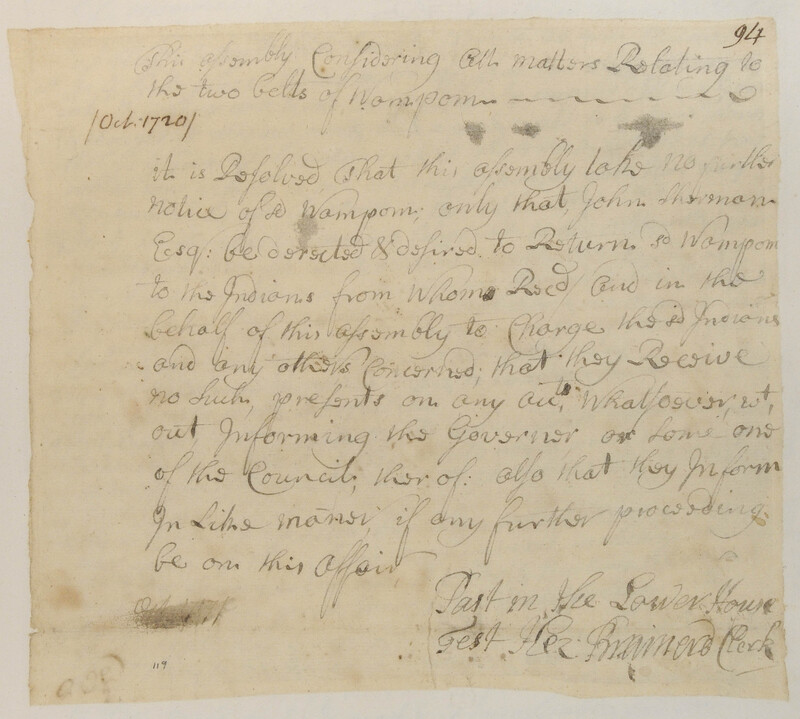 94
This assembly Considering All matters Relating to
the two belts of Wampom
/Oct. 1720/
it is Resolved That this assembly take no further
notice of sd Wampom; only that John Sherman
Esqr: be derected & desired to Return sd Wampom
to the Indians from Whome Recd And in the
behalf of this assembly to Charge the sd Indians
and any others Concerned; that they Receive
no such presents on any acts Whatsoever, wt,
out Informing the Governer or some one
of the Council, ther of: also that they Inform
In Like maner, if any further proceeding
be on this affair
Past in the Lower House
Test Hez: Brainerd Clerk
119